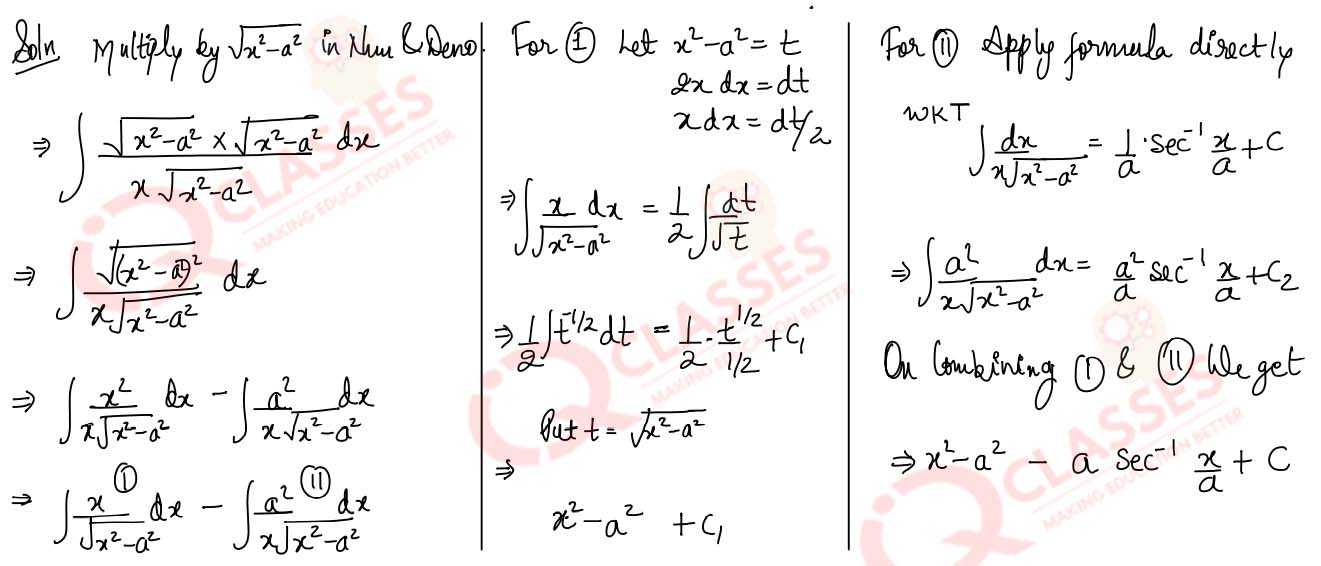 Soln Multiply by √x²-a² in Num & Deno.
⇒ ∫ √x²-a² × √x²-a² / x√x²-a² dx
⇒ ∫ √(x²-a²)² / x√x²-a² dx
⇒ ∫ x² / x√x²-a² dx - ∫ a² / x√x²-a² dx
⇒ ∫ x / √x²-a² dx (I) - ∫ a² / x√x²-a² dx (II)
For (I) Let x²-a² = t
2x dx = dt
x dx = dt/2
⇒ ∫ x dx / √x²-a² = 1/2 ∫ dt / √t
⇒ 1/2 ∫ t^-1/2 dt = 1/2 · t^1/2 / 1/2 + C₁
Put t = √x²-a²
⇒
x²-a² + C₁
For (II) Apply formula directly
WKT
∫ dx / x√x²-a² = 1/a · sec⁻¹ x/a + C
⇒ ∫ a² / x√x²-a² dx = a²/a sec⁻¹ x/a + C₂
On Combining (I) & (II) We get
⇒ x²-a² - a sec⁻¹ x/a + C
CLASSES
MAKING EDUCATION BETTER
CLASSES
MAKING EDUCATION BETTER
CLASSES
MAKING EDUCATION BETTER